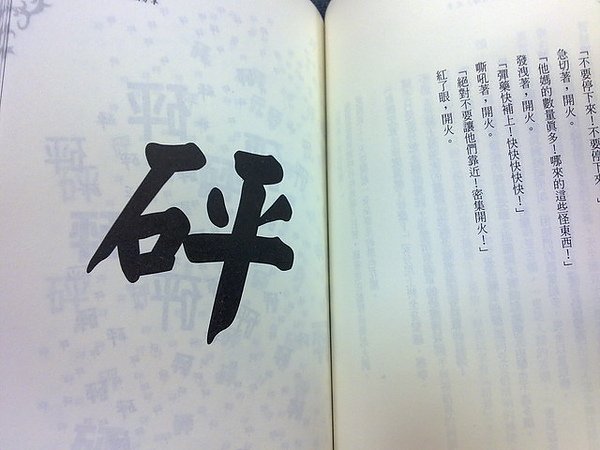 「不要停下來！不要停下來！」
急切著，開火。
「他媽的數量真多！哪來的這些怪東西！」
發洩著，開火。
「彈藥快補上！快快快快快！」
嘶吼著，開火。
「絕對不要讓他們靠近！密集開火！」
紅了眼，開火。
砰